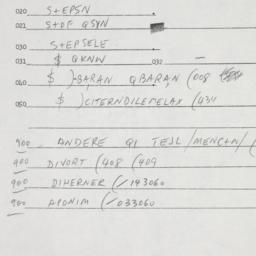 020 S+EPSN
021 S+DF QSYN
030 S+EPSELE
031 $ QKNW 032 —
040 $ )-BARAN QBARAN (008
050 $ )CITERNDILEMELAX (431
900 ANDERE QI TESL/MENC+N/(
900 DIVORT (408 (409
900 DIHERNER (/143060
900 APONIM (/033060